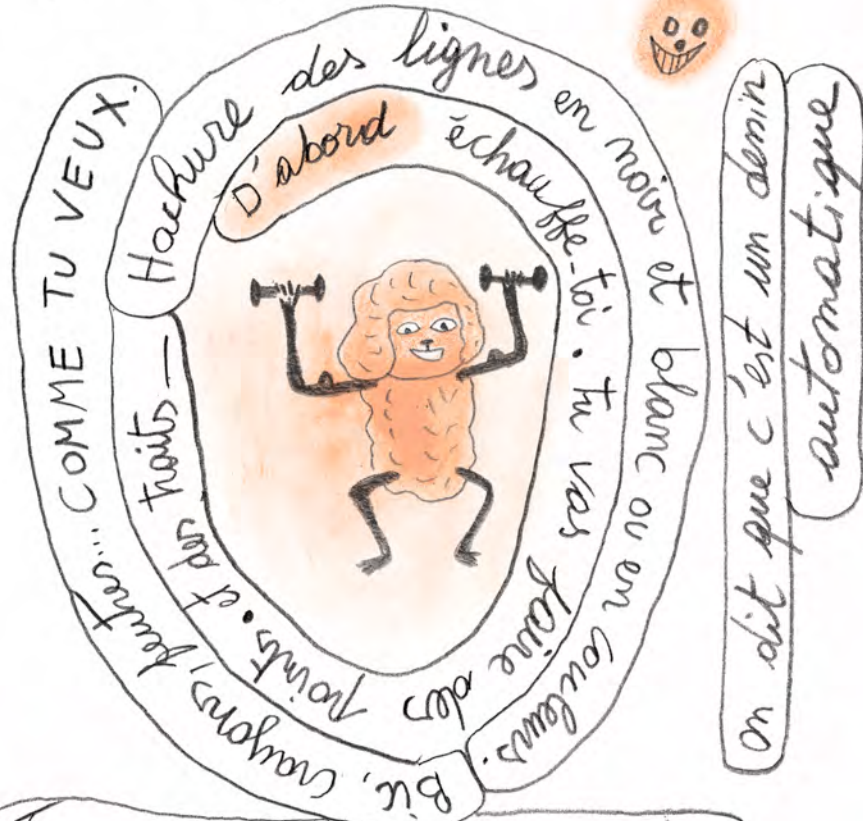 D'abord échauffe-toi. tu vas faire des points. et des traits —
Hachure des lignes en noir et blanc ou en couleurs.
Bic, crayons, feutres... COMME TU VEUX.
on dit que c'est un dessin
automatique